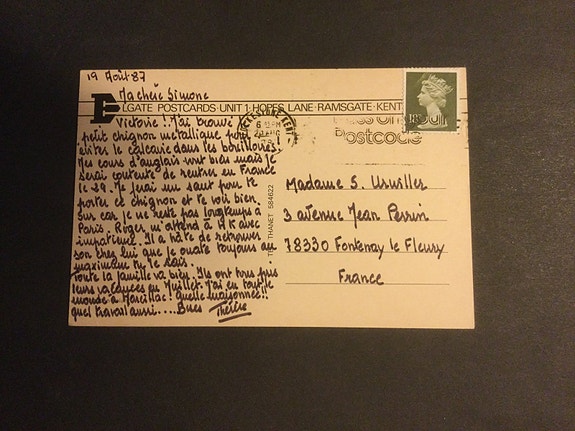 19 Août 87
Ma chère Simone
ELGATE POSTCARDS·UNIT 1·HOPES LANE·RAMSGATE·KENT
Victoire ! J'ai trouvé
petit chignon métallique pour
éviter le calcaire dans les bouilloires.
Mes cours d'anglais vont bien mais je
serai contente de rentrer en France
le 29. Je ferai un saut pour te
porter ce chignon et te voir bien
sur car je ne reste pas longtemps à
Paris. Roger m'attend à
impatience. Il a hâte de retrouver
son
maximum tu le sais.
Toute la famille va bien. Ils ont tous pris
leurs vacances en Juillet. J'ai eu tout le
monde à Marcillac ! quelle maisonnée !!
quel travail aussi.... Bises Thérèse
TEL. THANET 584622
KENT
6
Postcode
Madame S. Uruiller
3 avenue Jean Perrin
78330 Fontenay le Fleury
France